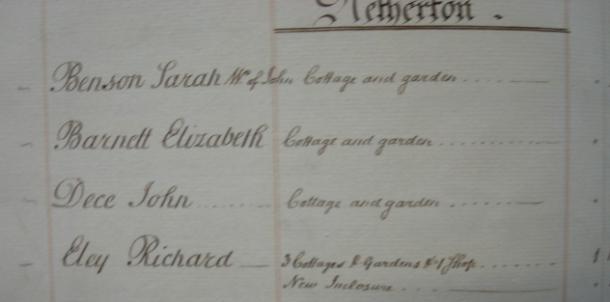 Netherton.
Benson Sarah Wᵈ of John Cottage and garden
Barnett Elizabeth Cottage and garden
Dece John Cottage and garden
Eley Richard 3 Cottages & Gardens & 1 Shop
New Inclosure